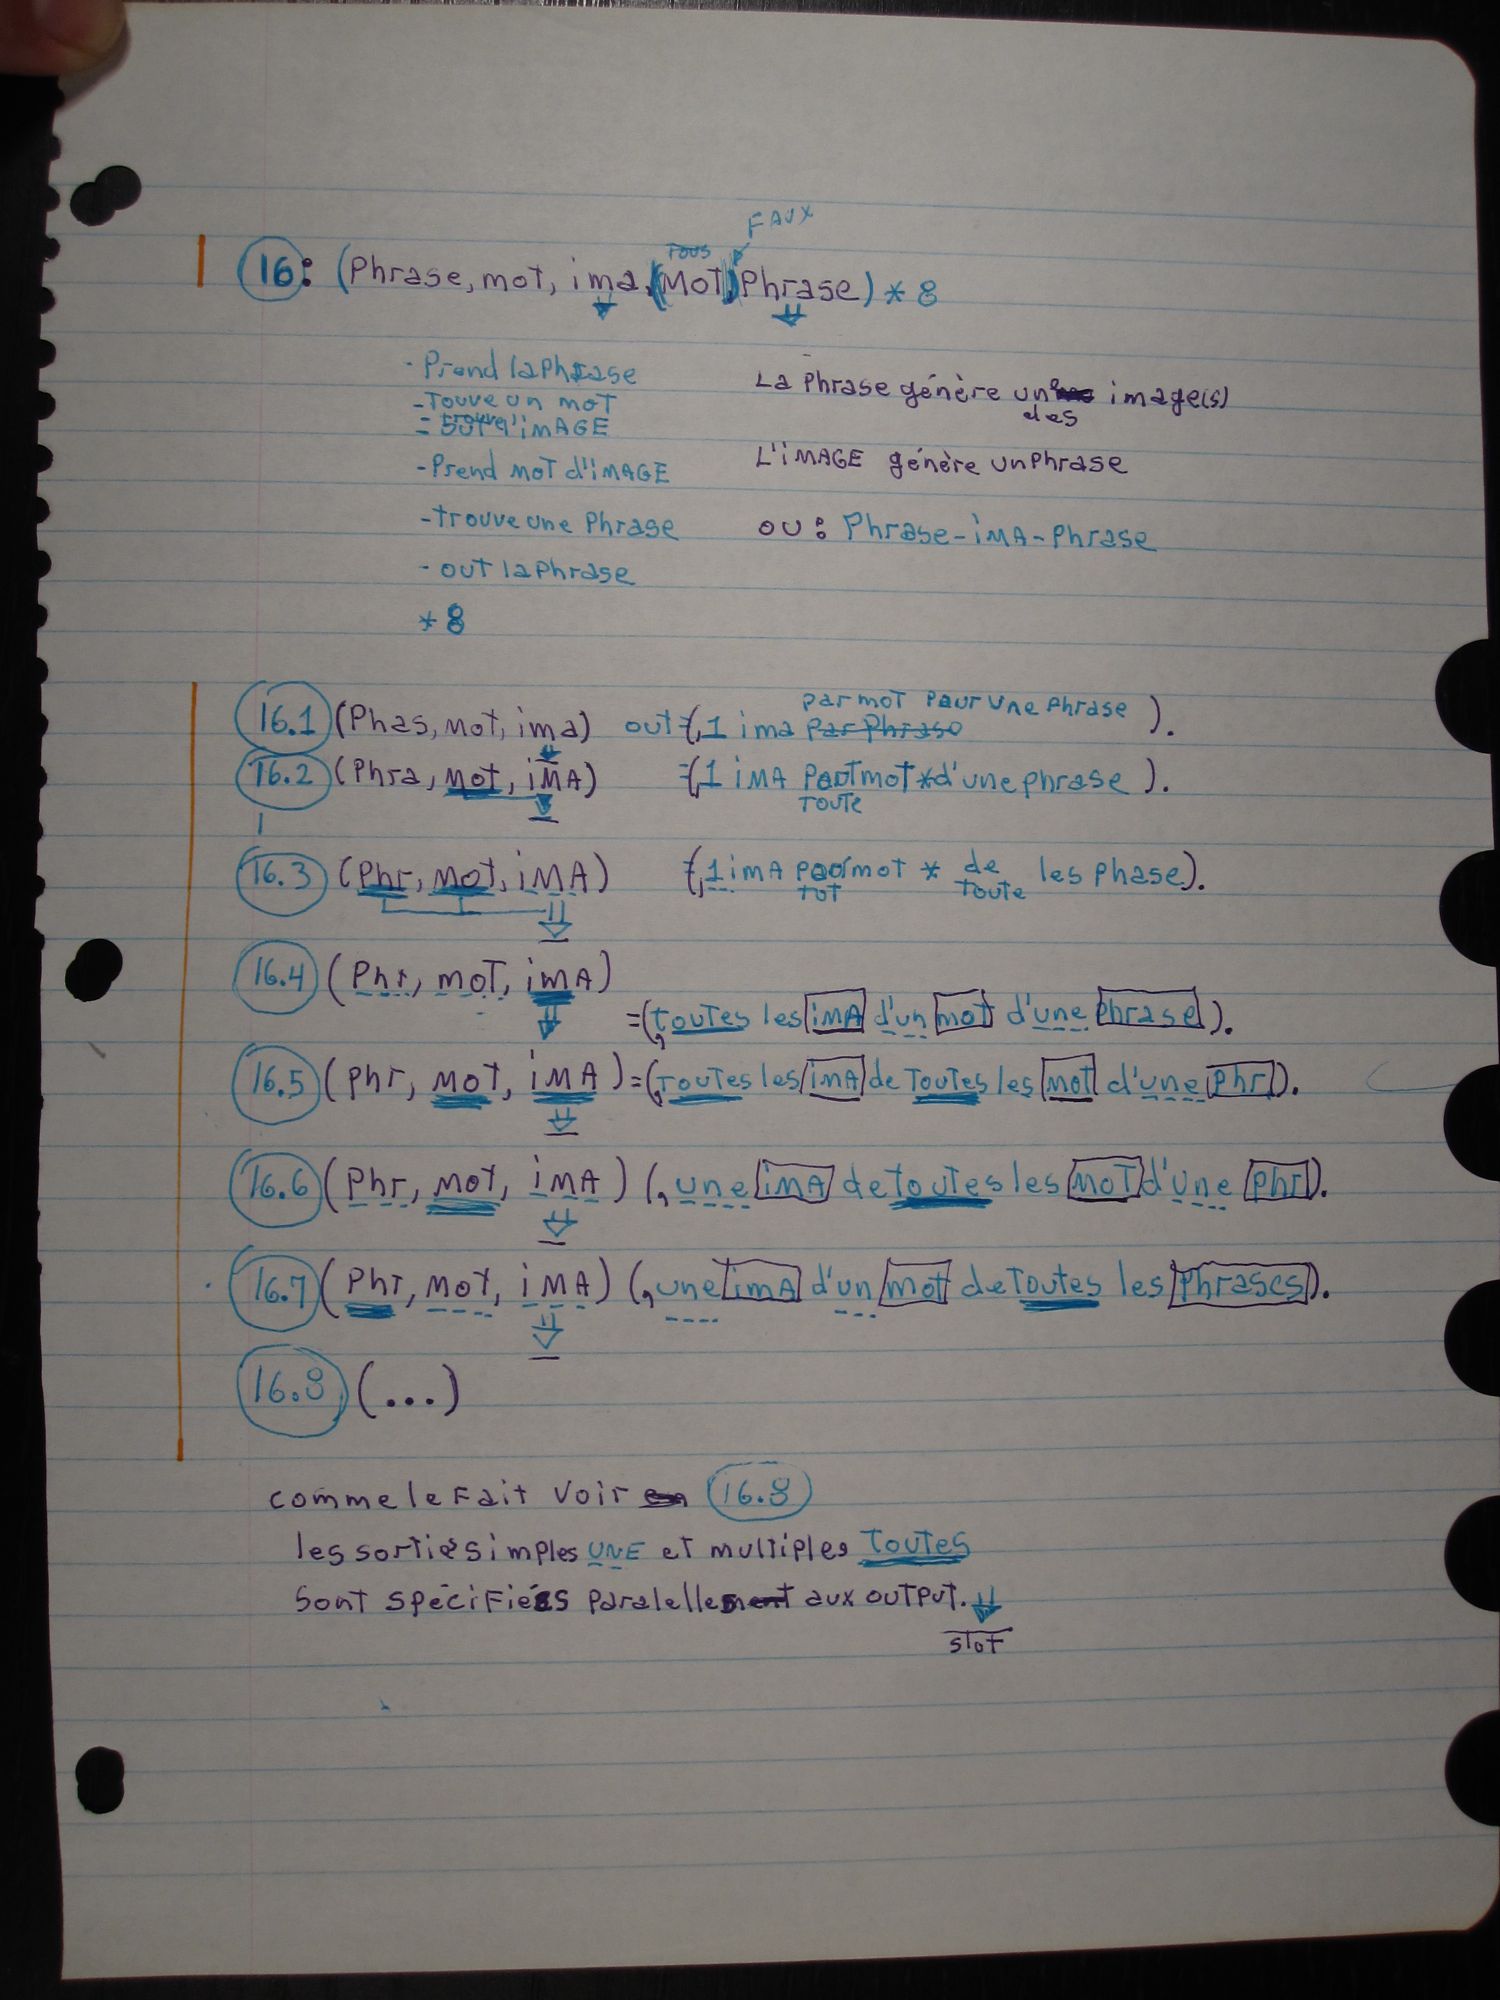 FAUX
TOUS
16: (Phrase, mot, ima, (MOT) Phrase) * 8
- Prend la Phrase
- Touve un mot
= trouve l'iMAGE
- Prend MOT d'iMAGE
- trouve une Phrase
- out la Phrase
* 8
La Phrase génère une image(s)
des
L'iMAGE génère un Phrase
ou : Phrase-iMA-Phrase
par mot pour une Phrase
16.1 (Phas, Mot, ima) out (, 1 ima par Phrase ).
16.2 (Phra, Mot, iMA) =(, 1 iMA mot * d'une phrase ).
TOUTE
16.3 (Phr, Mot, iMA) (, 1 imA mot * de les Phase).
TOT TOUTE
16.4 (Phr, moT, imA)
=(, toutes les imA d'un mot d'une Phrase).
16.5 (Phr, MOT, iMA) =(, TOUTES les imA de TOUTES les mot d'une Phr).
16.6 (Phr, Mot, iMA) (, une imA de toutes les MOT d'une Phr).
16.7 (Phr, MOT, iMA) (, une imA d'un mot de Toutes les Phrases).
16.8 (...)
comme le Fait voir en 16.8
les sorties simples UNE et multiples TOUTES
Sont SPéciFiées Paralellesment aux OUTPUT.
slot